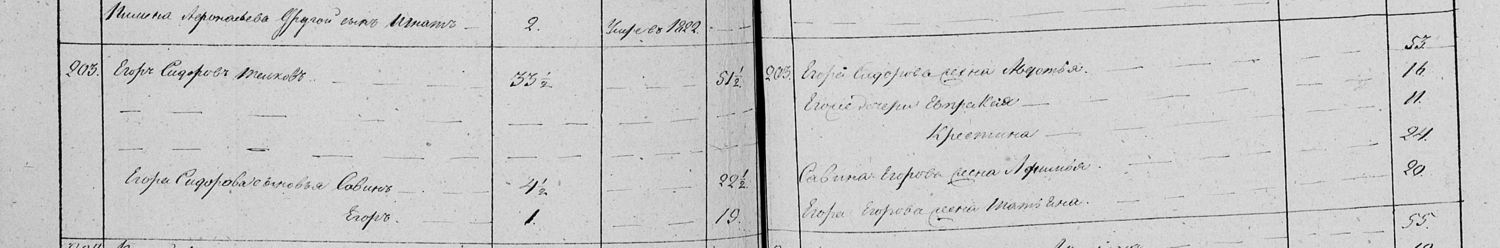 Пимина Афонасьева Другой сынъ Игнатъ 2. Умре въ 1822.
53.
203. Егоръ Сидоровъ 33½ 51½ 203. Егора Сидорова жена Авдотья. 16.
Егоже дочери Евпраксия 11.
Крестина 24.
Егора Сидорова сыновья Савинъ 4½ 22½ Савина Егорова жена Афимья. 20.
Егоръ. 1. 19. Егора Егорова жена Татьяна.
55.